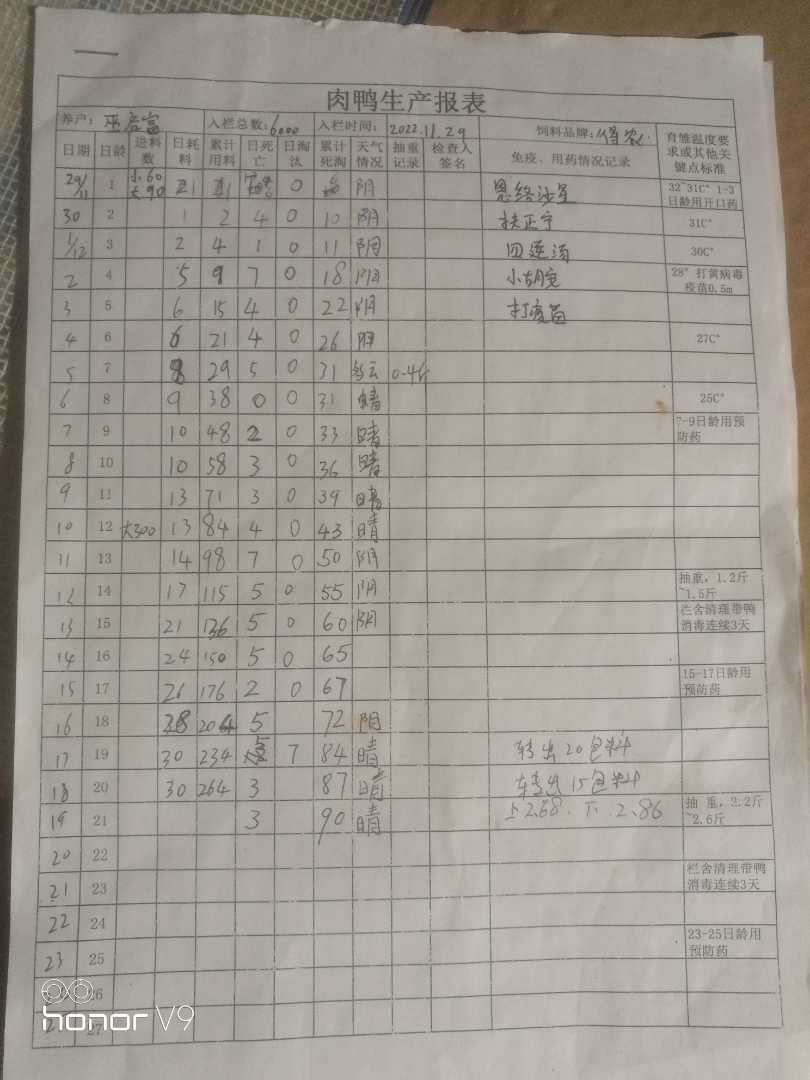 肉鸭生产报表
养户： 入栏总数：6000 入栏时间：2022.11.29 饲料品牌： 育雏温度要求或其他关键点标准
日期 日龄 进料数 日耗料 累计用料 日死亡 日淘汰 累计死淘 天气情况 抽重记录 检查人签名 免疫、用药情况记录
29/11 1 小60 大90 0 阴 恩络沙星 32~31C° 1-3日龄用开口药
30 2 1 2 4 0 10 阴 扶正宁 31C°
1/12 3 2 4 1 0 11 阴 四逆汤 30C°
2 4 5 9 7 0 18 阴 28° 打黄病毒疫苗0.5m
3 5 6 15 4 0 22 阴 打疫苗
4 6 6 21 4 0 26 阴 27C°
5 7 8 29 5 0 31 多云 0.4斤
6 8 9 38 0 0 31 晴 25C°
7 9 10 48 2 0 33 晴 7-9日龄用预防药
8 10 10 58 3 0 36 晴
9 11 13 71 3 0 39 晴
10 12 大300 13 84 4 0 43 晴
11 13 14 98 7 0 50 阴
12 14 17 115 5 0 55 阴 抽重，1.2斤~1.5斤
13 15 21 136 5 0 60 阴 栏舍清理带鸭消毒连续3天
14 16 24 150 5 0 65
15 17 26 176 2 0 67 15-17日龄用预防药
16 18 28 204 5 72 阴
17 19 30 234 5 7 84 晴 转出20包料
18 20 30 264 3 87 晴 转出15包料
19 21 3 90 晴 上2.68. 下 2.86 抽 重，2.2斤~2.6斤
20 22
21 23 栏舍清理带鸭消毒连续3天
22 24
23 25 23-25日龄用预防药
26
27
honor V9